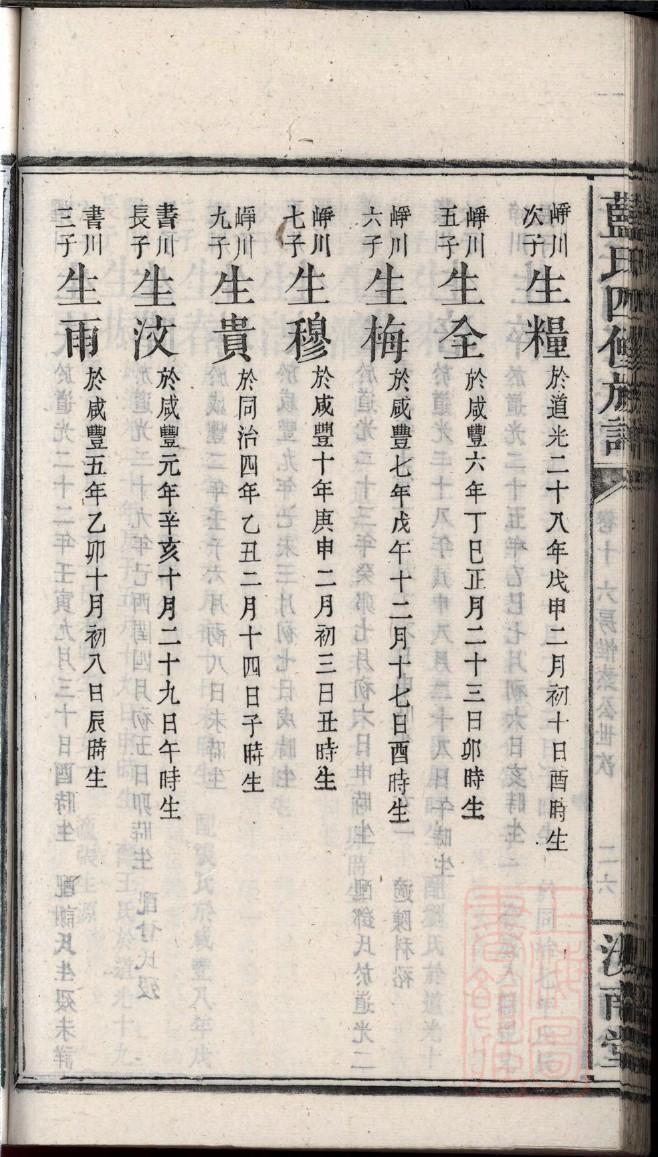 藍氏四修族譜
卷十六房惟
公世次
二六
汝南堂
崢川次子生糧於道光二十八年戊申二月初十日酉時生
崢川五子生全於咸豐六年丁巳正月二十三日卯時生
崢川六子生梅於咸豐七年戊午十二月十七日酉時生
崢川七子生穆於咸豐十年庚申二月初三日丑時生
崢川九子生貴於同治四年乙丑二月十四日子時生
書川長子生汶於咸豐元年辛亥十月二十九日午時生
書川三子生雨於咸豐五年乙卯十月初八日辰時生